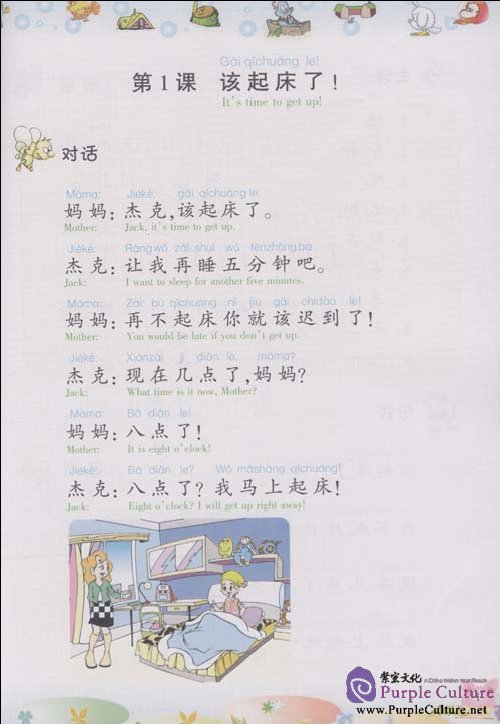 Gāi qǐchuáng le!
第1课 该起床了!
It's time to get up!
对话
Māma: Jiékè, gāi qǐchuáng le.
妈妈:杰克,该起床了。
Mother: Jack, it's time to get up.
Jiékè: Ràng wǒ zài shuì wǔ fēnzhōng ba.
杰克:让我再睡五分钟吧。
Jack: I want to sleep for another five minutes.
Māma: Zài bù qǐchuáng nǐ jiù gāi chídào le!
妈妈:再不起床你就该迟到了!
Mother: You would be late if you don't get up.
Jiékè: Xiànzài jǐ diǎn le, māma?
杰克:现在几点了,妈妈?
Jack: What time is it now, Mother?
Māma: Bā diǎn le!
妈妈:八点了!
Mother: It is eight o'clock!
Jiékè: Bā diǎn le? Wǒ mǎshàng qǐchuáng!
杰克:八点了?我马上起床!
Jack: Eight o'clock? I will get up right away!
紫宸文化 A China Within Your Reach
Purple Culture
www.PurpleCulture.net